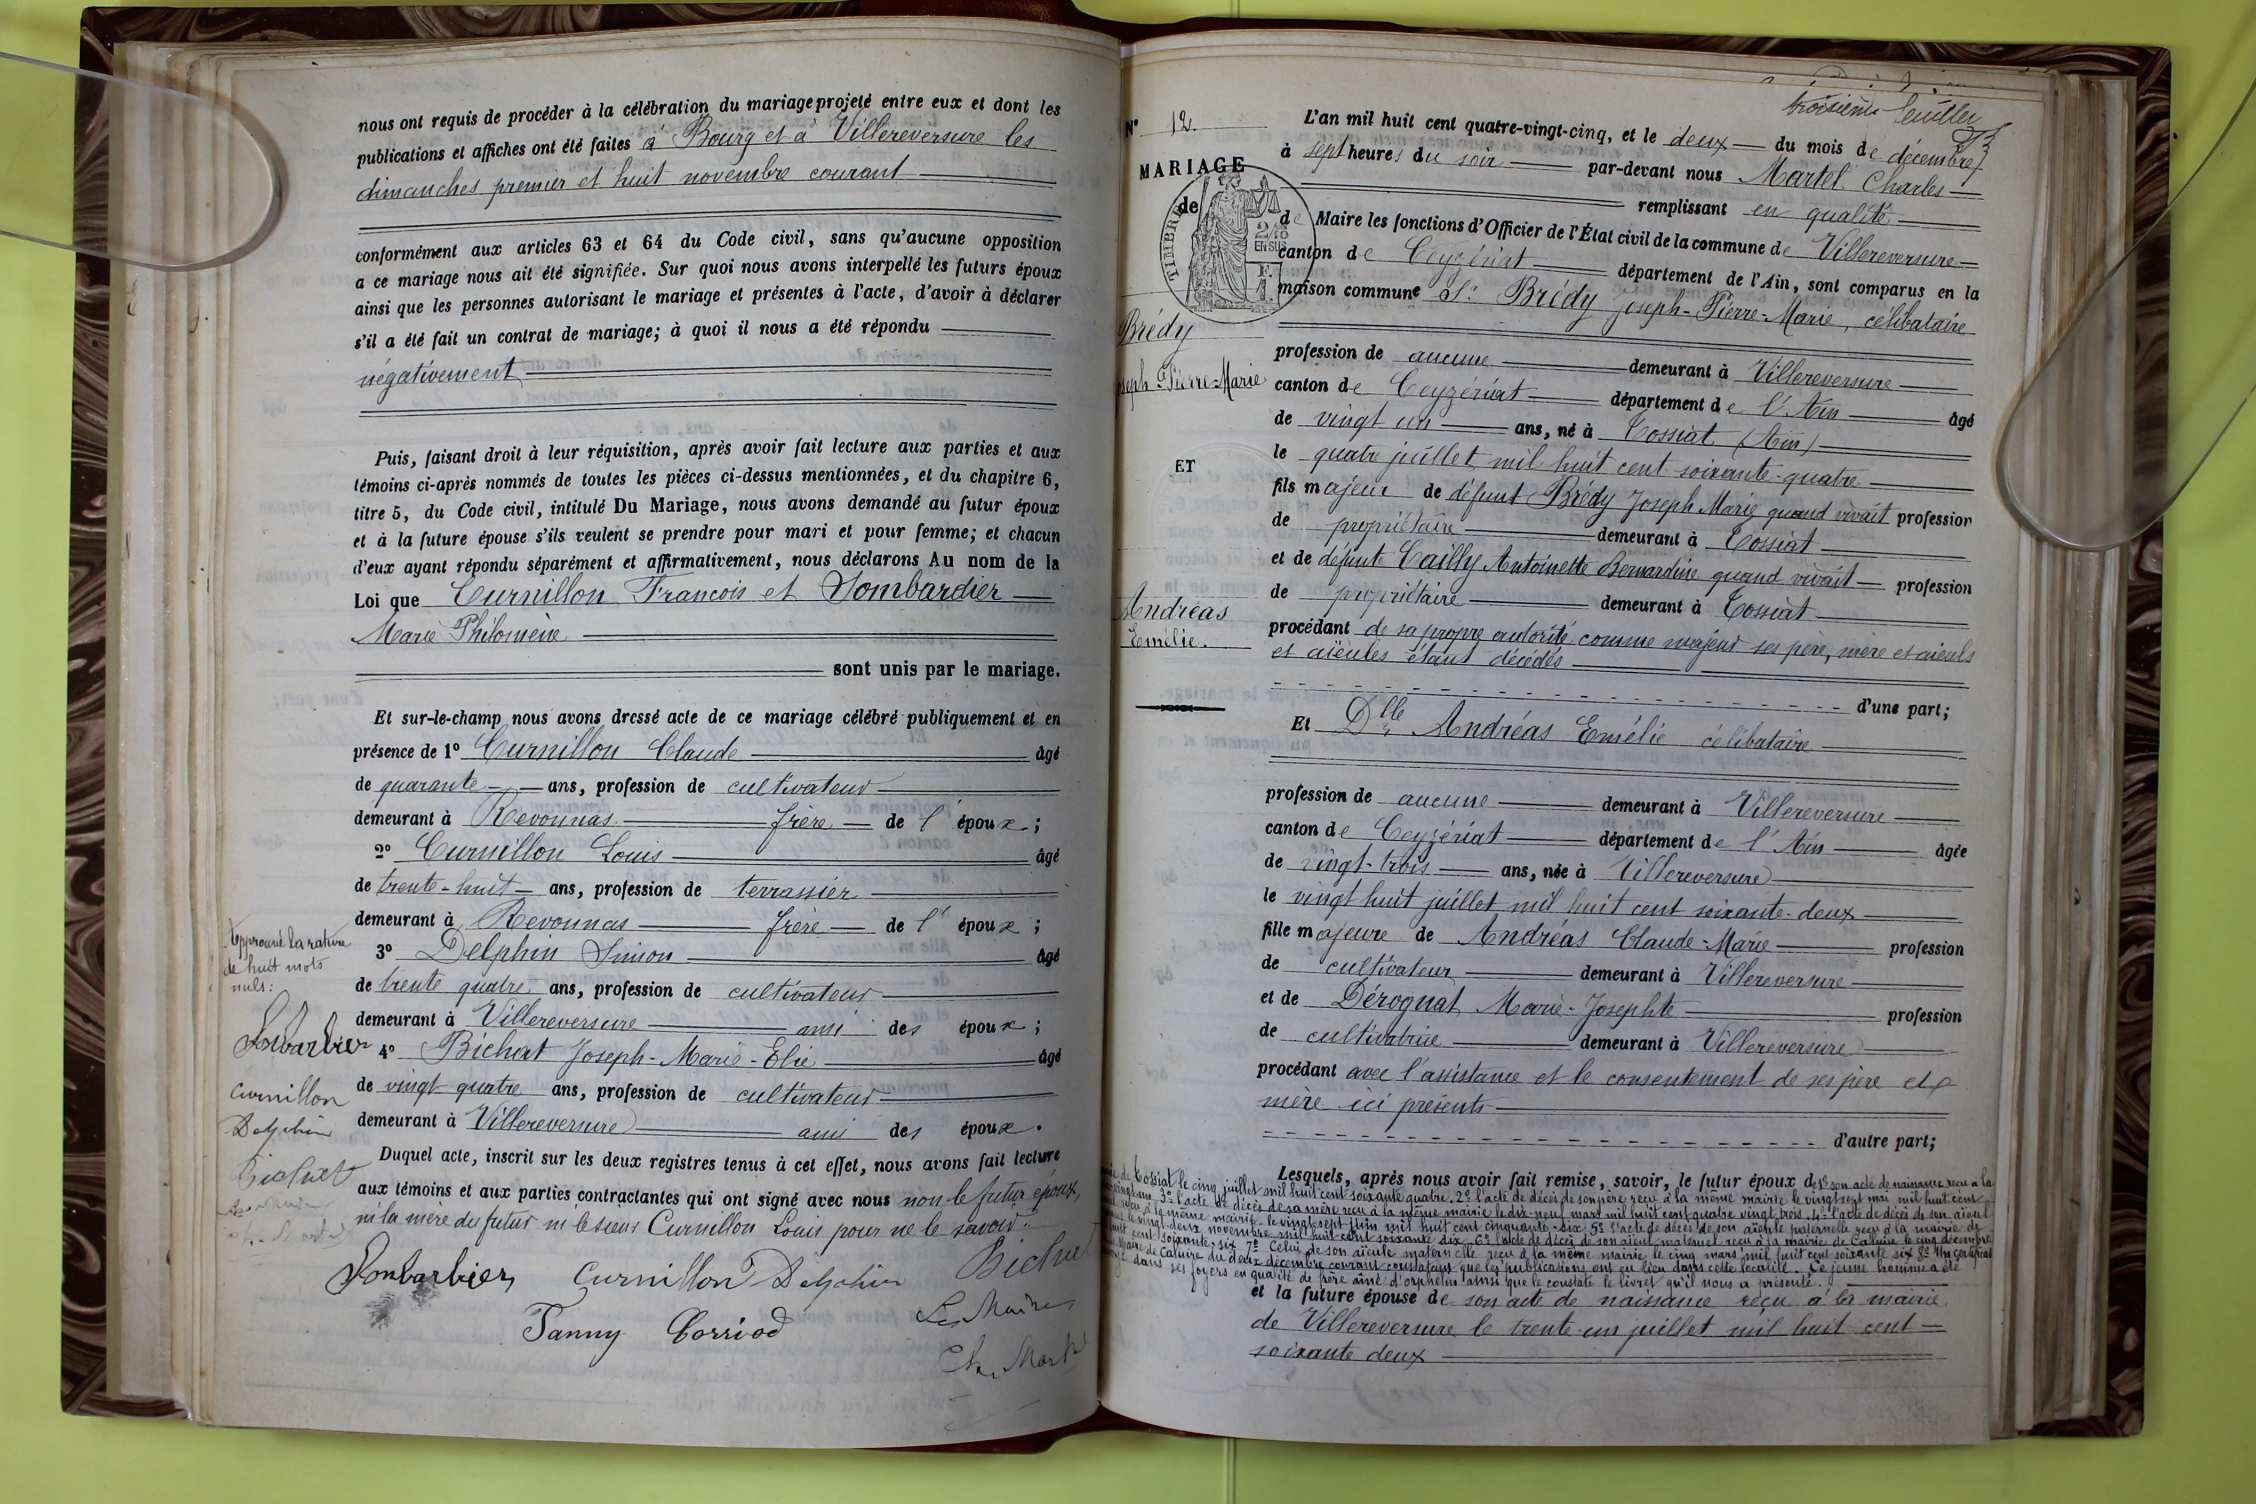 nous ont requis de procéder à la célébration du mariage projeté entre eux et dont les
publications et affiches ont été faites à Bourg et à Villereversure les
dimanches premier et huit novembre courant
conformément aux articles 63 et 64 du Code civil, sans qu'aucune opposition
a ce mariage nous ait été signifiée. Sur quoi nous avons interpellé les futurs époux
ainsi que les personnes autorisant le mariage et présentes à l'acte, d'avoir à déclarer
s'il a été fait un contrat de mariage; à quoi il nous a été répondu
négativement
Puis, faisant droit à leur réquisition, après avoir fait lecture aux parties et aux
témoins ci-après nommés de toutes les pièces ci-dessus mentionnées, et du chapitre 6,
titre 5, du Code civil, intitulé Du Mariage, nous avons demandé au futur époux
et à la future épouse s'ils veulent se prendre pour mari et pour femme; et chacun
d'eux ayant répondu séparément et affirmativement, nous déclarons Au nom de la
Loi que Curnillon François et Lombardier
Marie Philomène
sont unis par le mariage.
Et sur-le-champ nous avons dressé acte de ce mariage célébré publiquement et en
présence de 1° Curnillon Claude âgé
de quarante ans, profession de cultivateur
demeurant à Revonnas frère de l'époux;
2° Curnillon Louis âgé
de trente-huit ans, profession de terrassier
demeurant à Revonnas frère de l'époux;
3° Delphin Simon âgé
de trente quatre ans, profession de cultivateur
demeurant à Villereversure ami des époux;
4° Bichat Joseph-Marie-Elie âgé
de vingt quatre ans, profession de cultivateur
demeurant à Villereversure ami des époux.
Duquel acte, inscrit sur les deux registres tenus à cet effet, nous avons fait lecture
aux témoins et aux parties contractantes qui ont signé avec nous non le futur époux,
ni la mère du futur ni le sieur Curnillon Louis pour ne le savoir.
Approuvé la rature
de huit mots
nuls:
Lonbarbier
Curnillon
Delphin
Bichat
Lonbarbier Curnillon Delphin Bichat
Fanny Corriod
Le Maire
Ch. Martel
troisième feuillet
N° 12.
MARIAGE
de
TIMBRE
Brédy
Joseph-Pierre-Marie
ET
Andréas
Emélie.
L'an mil huit cent quatre-vingt-cinq, et le deux du mois de décembre
à sept heures du soir par-devant nous Martel Charles
remplissant en qualité
de Maire les fonctions d'Officier de l'État civil de la commune de Villereversure
canton de Ceyzériat département de l'Ain, sont comparus en la
maison commune Sr Brédy Joseph-Pierre-Marie, célibataire
profession de aucune demeurant à Villereversure
canton de Ceyzériat département de l'Ain âgé
de vingt un ans, né à Tossiat (Ain)
le quatre juillet mil huit cent soixante-quatre
fils majeur de défunt Brédy Joseph Marie quand vivait profession
de propriétaire demeurant à Tossiat
et de défunte Cailly Antoinette Bernardine quand vivait profession
de propriétaire demeurant à Tossiat
procédant de sa propre autorité comme majeur ses père, mère et aïeuls
et aïeules étant décédés
d'une part;
Et Dlle Andréas Emélie célibataire
profession de aucune demeurant à Villereversure
canton de Ceyzériat département de l'Ain âgée
de vingt-trois ans, née à Villereversure
le vingt huit juillet mil huit cent soixante-deux
fille majeure de Andréas Claude-Marie profession
de cultivateur demeurant à Villereversure
et de Dérognat Marie-Josephte profession
de cultivatrice demeurant à Villereversure
procédant avec l'assistance et le consentement de ses père et
mère ici présents
d'autre part;
Lesquels, après nous avoir fait remise, savoir, le futur époux de 1° son acte de naissance reçu à la
de Tossiat le cinq juillet mil huit cent soixante quatre. 2° l'acte de décès de son père reçu à la même mairie le vingt sept mai mil huit cent
3° l'acte de décès de sa mère reçu à la même mairie le dix-neuf mars mil huit cent quatre vingt trois. 4° l'acte de décès de son aïeul
même mairie le vingt sept juin mil huit cent cinquante-six 5° l'acte de décès de son aïeule paternelle reçu à la mairie de
le vingt deux novembre mil huit cent soixante dix 6° l'acte de décès de son aïeul maternel reçu à la mairie de Caluire le cinq décembre
cent soixante-six 7° Celui de son aïeule maternelle reçu à la même mairie le cinq mars mil huit cent soixante six 8° Un certificat
Maire de Caluire du deux décembre courant constatant que les publications ont eu lieu dans cette localité. Ce jeune homme a été
dans ses foyers en qualité de frère aîné d'orphelins ainsi que le constate le livret qu'il nous a présenté.
et la future épouse de son acte de naissance reçu à la mairie
de Villereversure le trente-un juillet mil huit cent
soixante deux